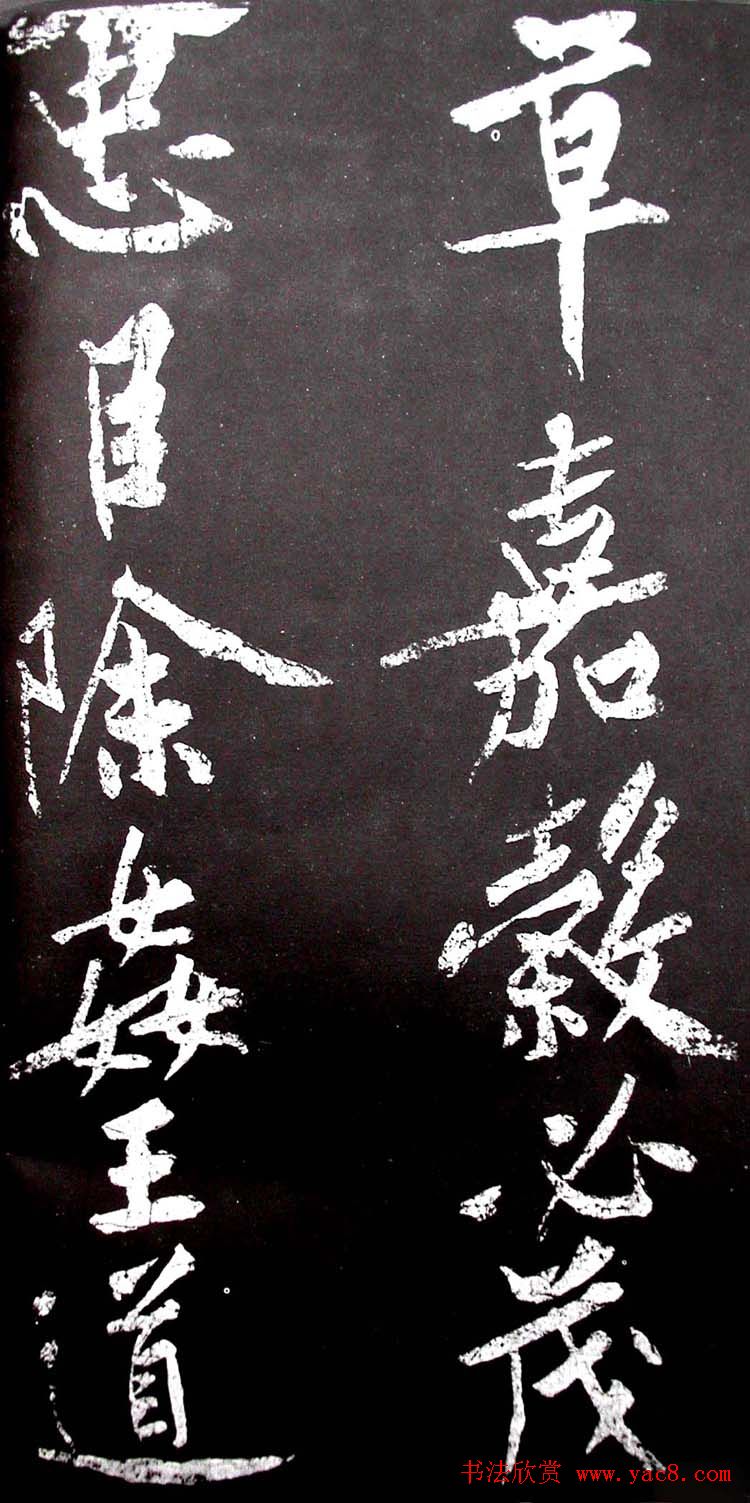 草嘉穀必茂
忠臣除姦王道
书法欣赏 www.yac8.com